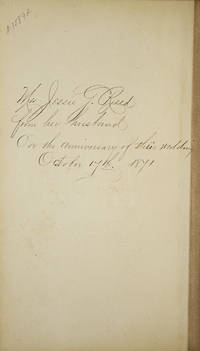 Mrs Jessie G. Reed
from her husband
On the anniversary of their wedding
October 17th. 1871